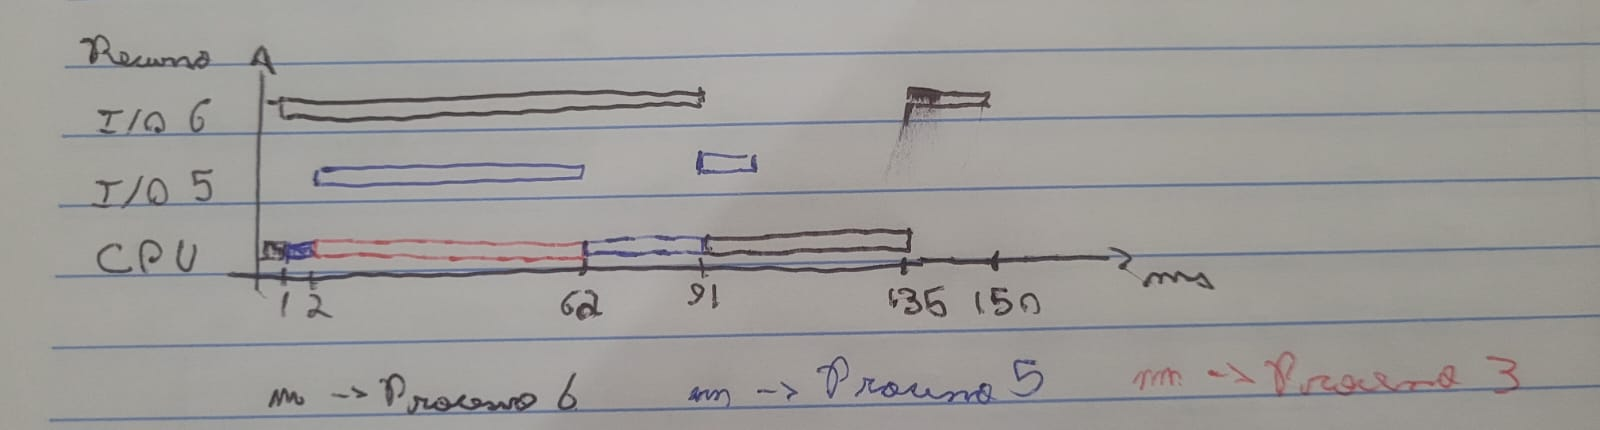 Recurso
I/O 6
I/O 5
CPU
1 2 62 91 135 150 ms
m -> Processo 6 m -> Processo 5 m -> Processo 3